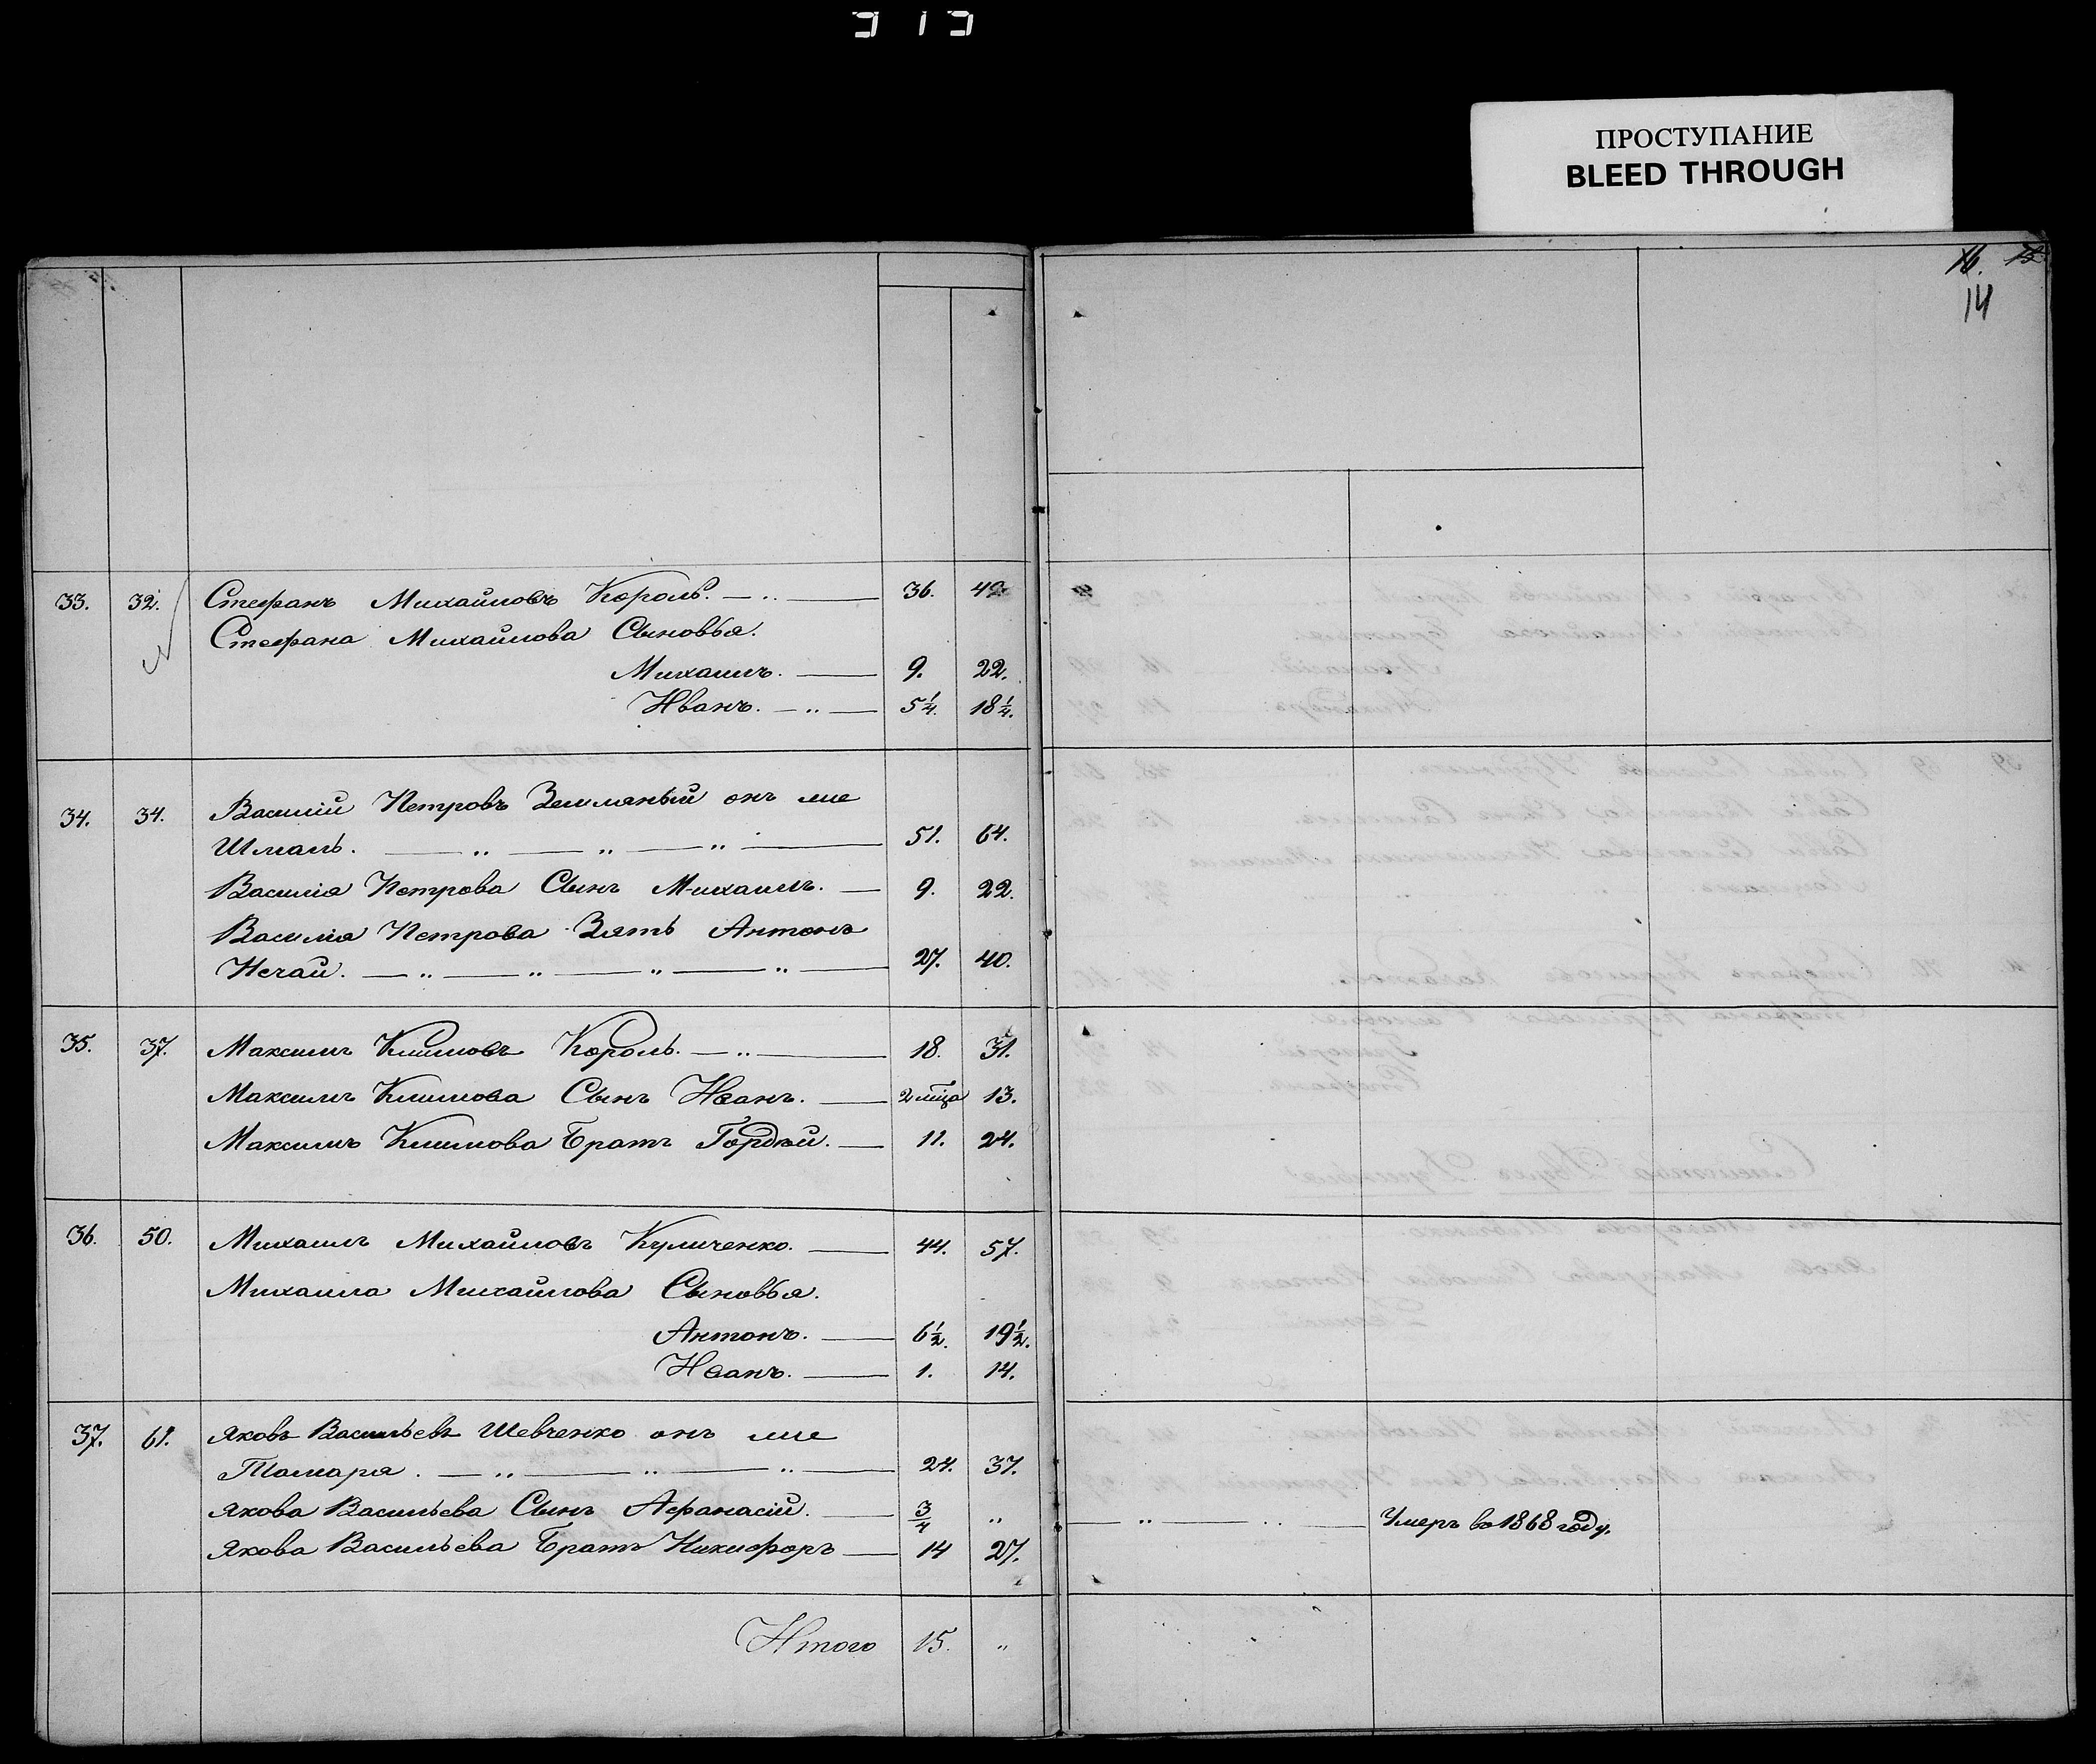 313
ПРОСТУПАНИЕ
BLEED THROUGH
14
33. 32. Стефанъ Михайловъ Король. 36. 49.
Стефана Михайлова Сыновья.
Михаилъ. 9. 22.
Иванъ. 5¼. 18¼.
34. 34. Василій Петровъ Земляный онъ же
Шмаль. 51. 64.
Василія Петрова Сынъ Михаилъ. 9. 22.
Василія Петрова Зять Антонъ
Нечай. 27. 40.
35. 37. Максимъ Климовъ Король. 18. 31.
Максимъ Климова Сынъ Иванъ. 2 мѣца 13.
Максимъ Климова Братъ Гордѣй. 11. 24.
36. 50. Михаилъ Михайловъ Куличенко. 44. 57.
Михаила Михайлова Сыновья.
Антонъ. 6½. 19½.
Иванъ. 1. 14.
37. 61. Яковъ Васильевъ Шевченко онъ же
Тамара. 24. 37.
Якова Васильева Сынъ Афанасій. ¾ „ Умеръ во 1868 году.
Якова Васильева Братъ Никифоръ 14 27.
Итого 15. „